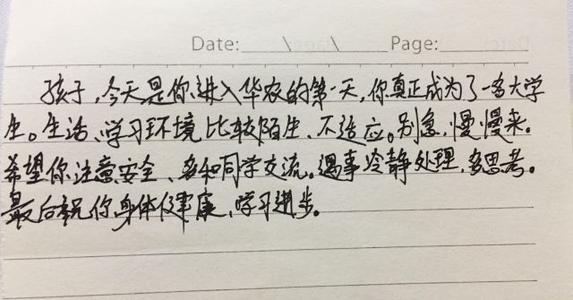 Date: \ \ Page:
孩子,今天是你进入华农的第一天,你真正成为了一名大学
生。生活、学习环境比较陌生、不适应。别急,慢慢来。
希望你注意安全、多和同学交流。遇事冷静处理,多思考。
最后祝你身体健康,学习进步。